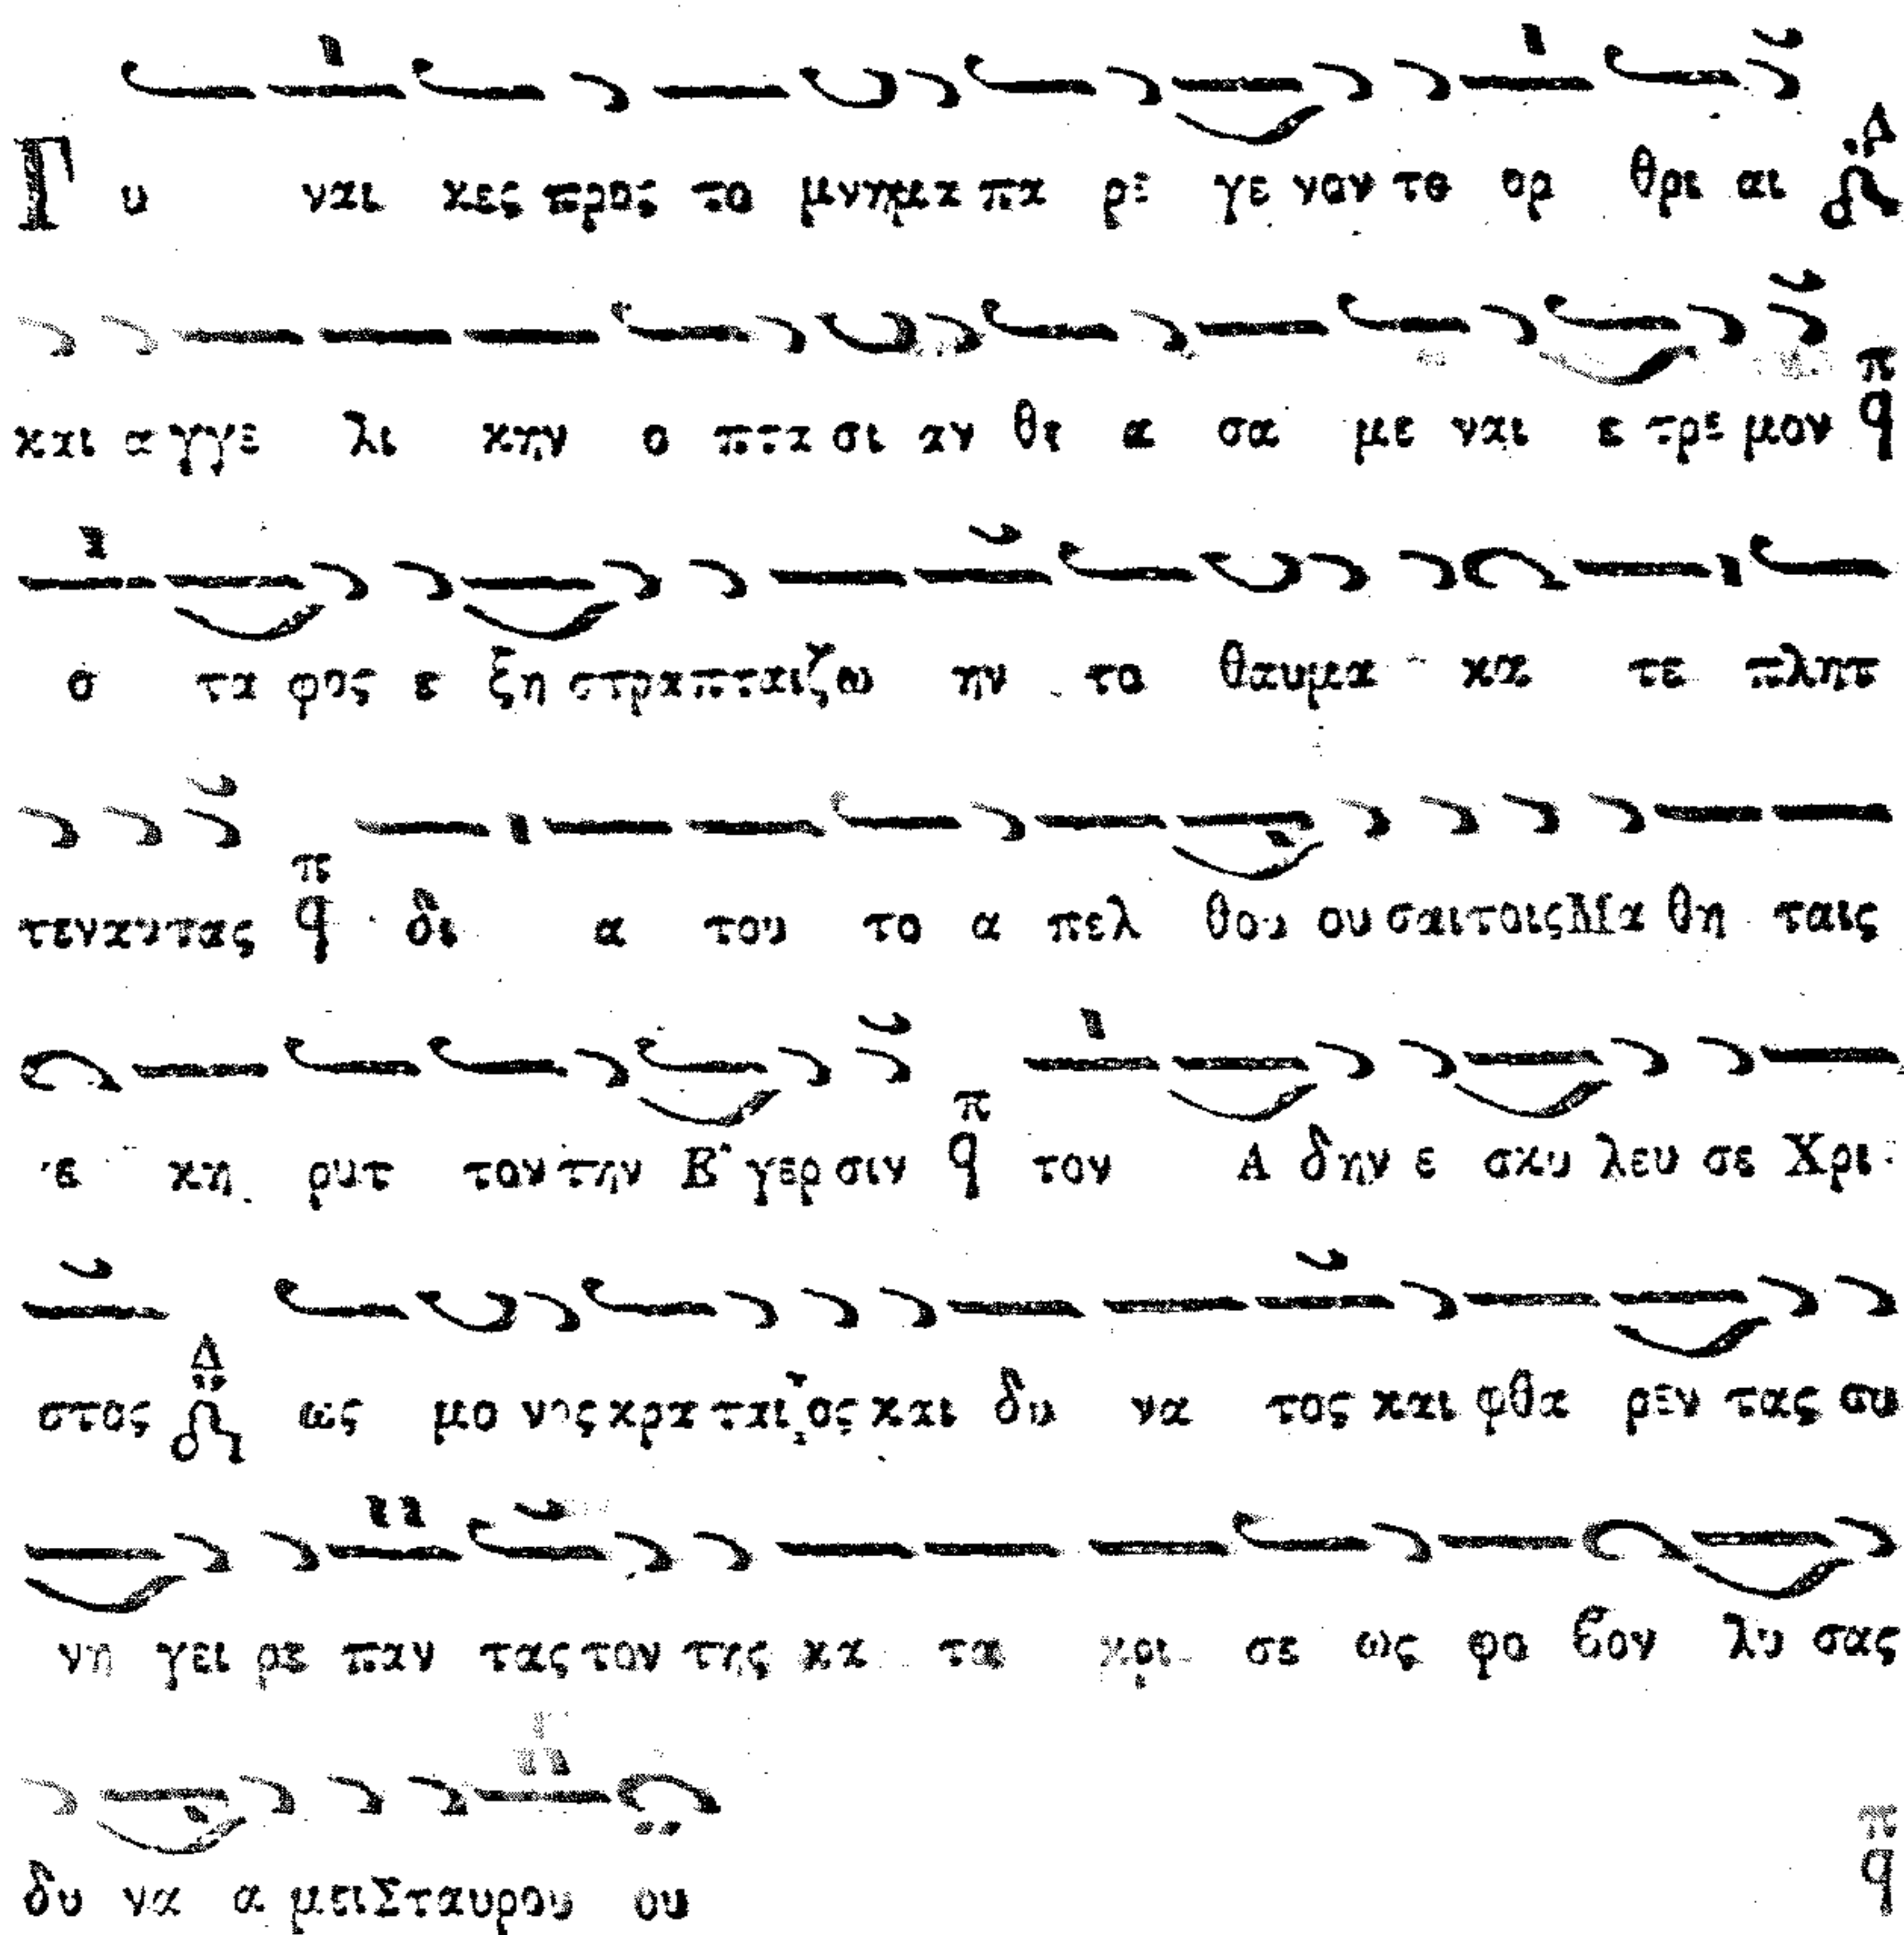 Γυ ναι κες προς το μνημα πα ρε γε νον το ορ θρι αι Δ
και α γγε λι κην ο πτα σι αν θε α σα με ναι ε τρε μον π q
ο τα φος ε ξη στραπται ζω ην το θαυμα κα τε πλητ
τεν αυτας π q δι α του το α πελ θου ου σαι τοις Μα θη ταις
ε κη ρυτ τον την Ε γερ σιν π q τον Α δην ε σκυ λευ σε Χρι
στος Δ ως μο νος κρα ται ος και δυ να τος και φθα ρεν τας συ
νη γει ρε παν τας τον της κα τα κρι σε ως φο βον λυ σας
δυ να α μει Σταυρου ου π q